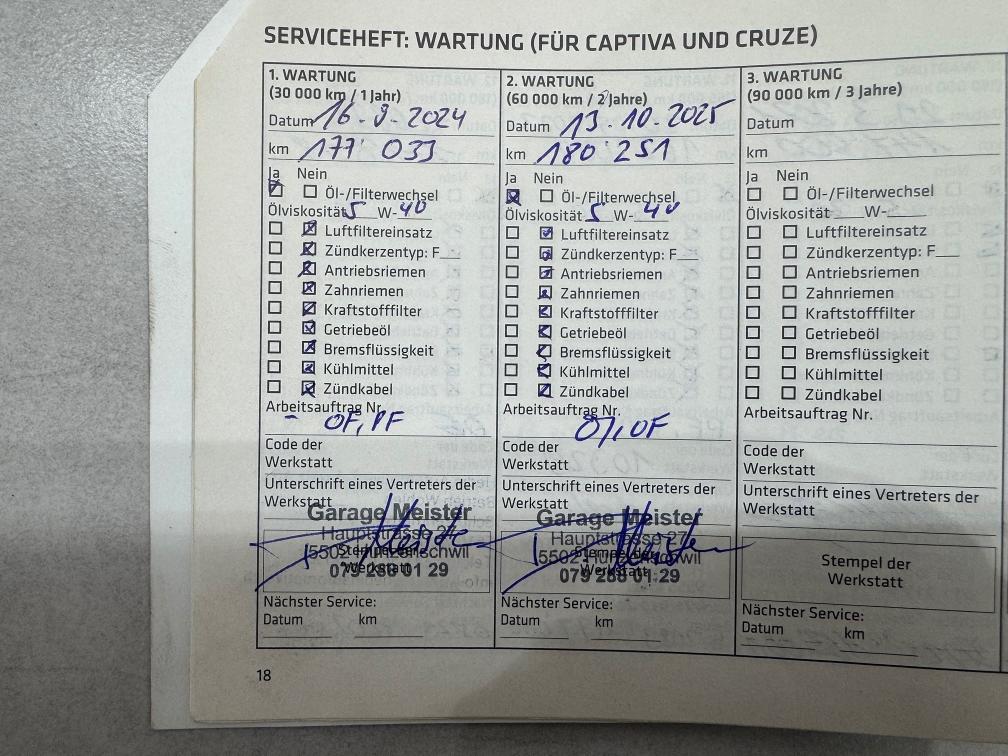 SERVICEHEFT: WARTUNG (FÜR CAPTIVA UND CRUZE)
1. WARTUNG
(30 000 km / 1 Jahr)
Datum 16-9-2024
km 177' 033
Ja Nein
Öl-/Filterwechsel
Ölviskosität 5 W-40
Luftfiltereinsatz
Zündkerzentyp: F
Antriebsriemen
Zahnriemen
Kraftstofffilter
Getriebeöl
Bremsflüssigkeit
Kühlmittel
Zündkabel
Arbeitsauftrag Nr.
- OF, PF
Code der
Werkstatt
Unterschrift eines Vertreters der
Werkstatt
Garage Meister
Hauptstrasse 27
Stempel der
Werkstatt
079 288 01 29
Nächster Service:
Datum km
2. WARTUNG
(60 000 km / 2 Jahre)
Datum 13-10-2025
km 180' 251
Ja Nein
Öl-/Filterwechsel
Ölviskosität 5 W-40
Luftfiltereinsatz
Zündkerzentyp: F
Antriebsriemen
Zahnriemen
Kraftstofffilter
Getriebeöl
Bremsflüssigkeit
Kühlmittel
Zündkabel
Arbeitsauftrag Nr.
OF
Code der
Werkstatt
Unterschrift eines Vertreters der
Werkstatt
Garage Meister
Hauptstrasse 27
Stempel der
Werkstatt
079 288 01 29
Nächster Service:
Datum km
3. WARTUNG
(90 000 km / 3 Jahre)
Datum
km
Ja Nein
Öl-/Filterwechsel
Ölviskosität W-
Luftfiltereinsatz
Zündkerzentyp: F
Antriebsriemen
Zahnriemen
Kraftstofffilter
Getriebeöl
Bremsflüssigkeit
Kühlmittel
Zündkabel
Arbeitsauftrag Nr.
Code der
Werkstatt
Unterschrift eines Vertreters der
Werkstatt
Stempel der
Werkstatt
Nächster Service:
Datum km
18